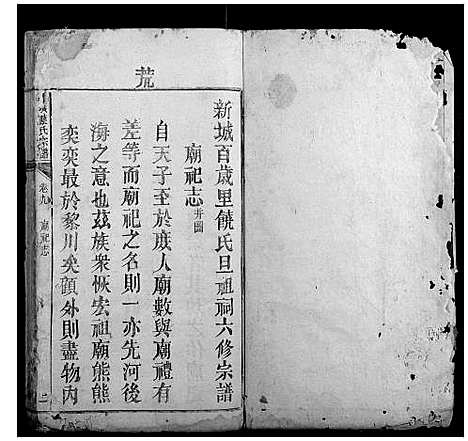 荒
新城百歲里饒氏旦祖祠六修宗譜
廟祀志并圖
自天子至於庶人廟數與廟禮有
差等而廟祀之名則一亦先河後
海之意也茲族衆恢宏祖廟熊熊
奕奕最於黎川矣顧外則盡物內
氏宗譜
卷九
廟祀志
二